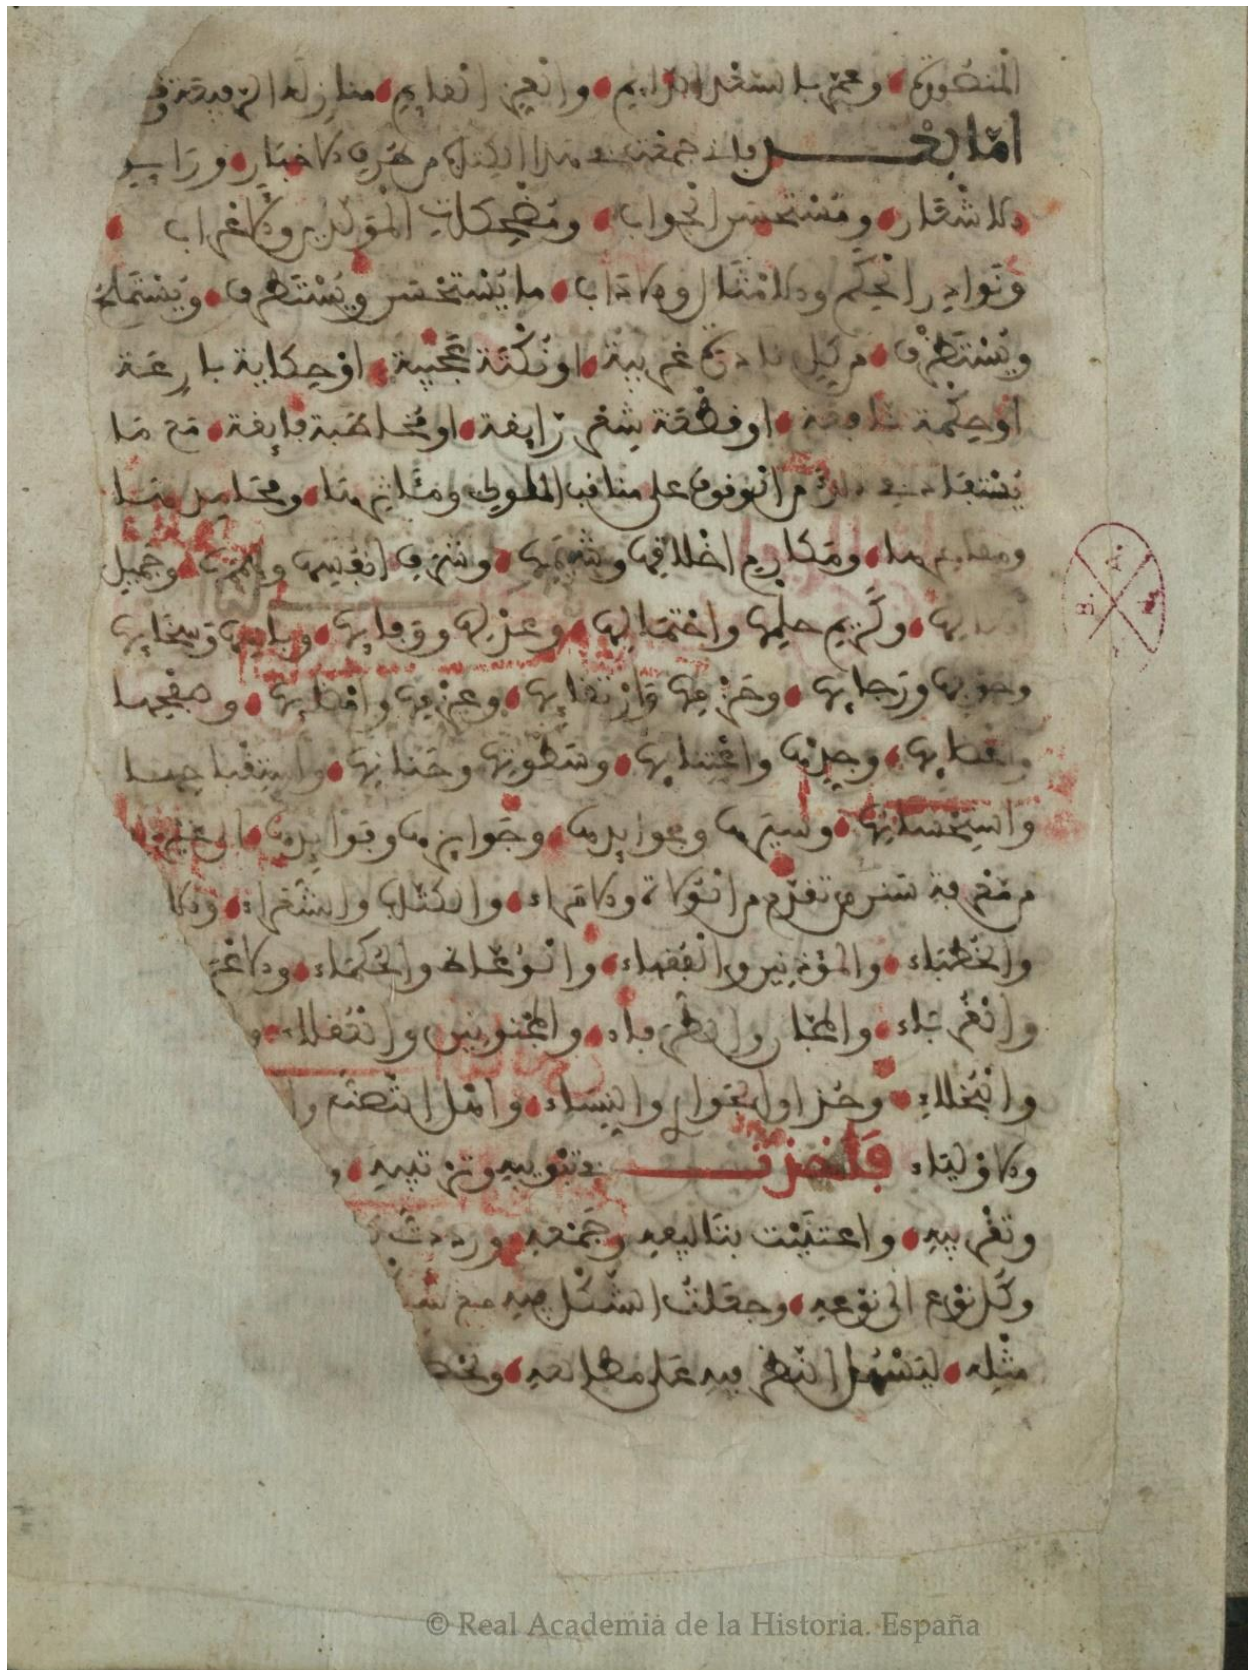 المنصورة وعمّر بالسّعد الدّايم والعِزّ القايم منازله الرّفيعة
امّا بعد فانى جمعت فى هذا الكتاب من طُرف الاخبار ورَايق
الاشعار ومُستحسن الجواب ومُضحكات المولّدين والاعراب
ونَوادر الحِكَم والامثال والاداب ما يُستحسن ويُستطرف ويُستملح
ويُستظرف من كل نادرة غريبة او نُكتة عَجيبة او حِكاية بارعَة
او حِكمة نافعة او قطعَة شِعر رَايقة او مخاطبة فايقة مع مَا
يُستفاد فى ذلك من الوقوف على مناقب الملوك ومآثرها ومحَامدها
ومفاخرها ومكارم اخلاقها وشيمها وشرف انفسها وهممها وجَميل
وكريم حلمها واحتمالها وعدلها ووفايها وباسها وسَخايها
وخوفها ورَجايها وحَزمها وارتقايها وعزمها وامضايها وصفحها
واغضايها وجدّها واعتنايها وسَطوتها وحنانها واستقباحها
واستحسانها وسيَرها وعوايدها وجَوايزها وفوايدها الى غير
من مَعرفة سنن من تقدّم من الولاة والامراء والكتّاب والشّعراء
والخُطبَاء والمؤذنين والفُقهاء والوُعّاظ والحُكماء
والغُربَاء والمخا والظُّرفاء والمجنونين والعُقلاء
والبُخلاء وحُذّاق الجوار والنِّساء واهل
والاوليَاء فأخذت فى تَبويبه وترتيبه
وتَقريبه واعتنَيْت بتاليفه وجَمعه ورددتُ
وكلّ نَوع الى نَوعه وجعَلتُ الشّكل فيه مع
مثله ليَسهُل النّظر فيه عَلى مطالعه
© Real Academia de la Historia. España